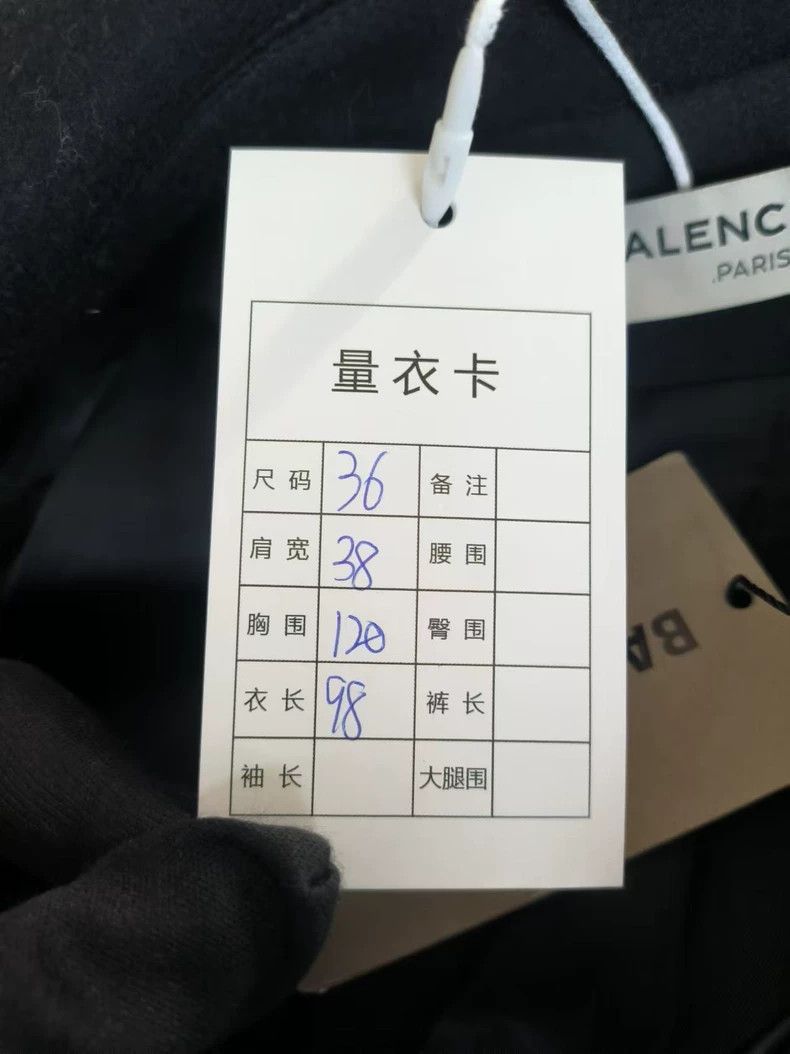 ALENC
.PARIS
量衣卡
尺码 36 备注
肩宽 38 腰围
胸围 120 臀围
衣长 98 裤长
袖长 大腿围
BA